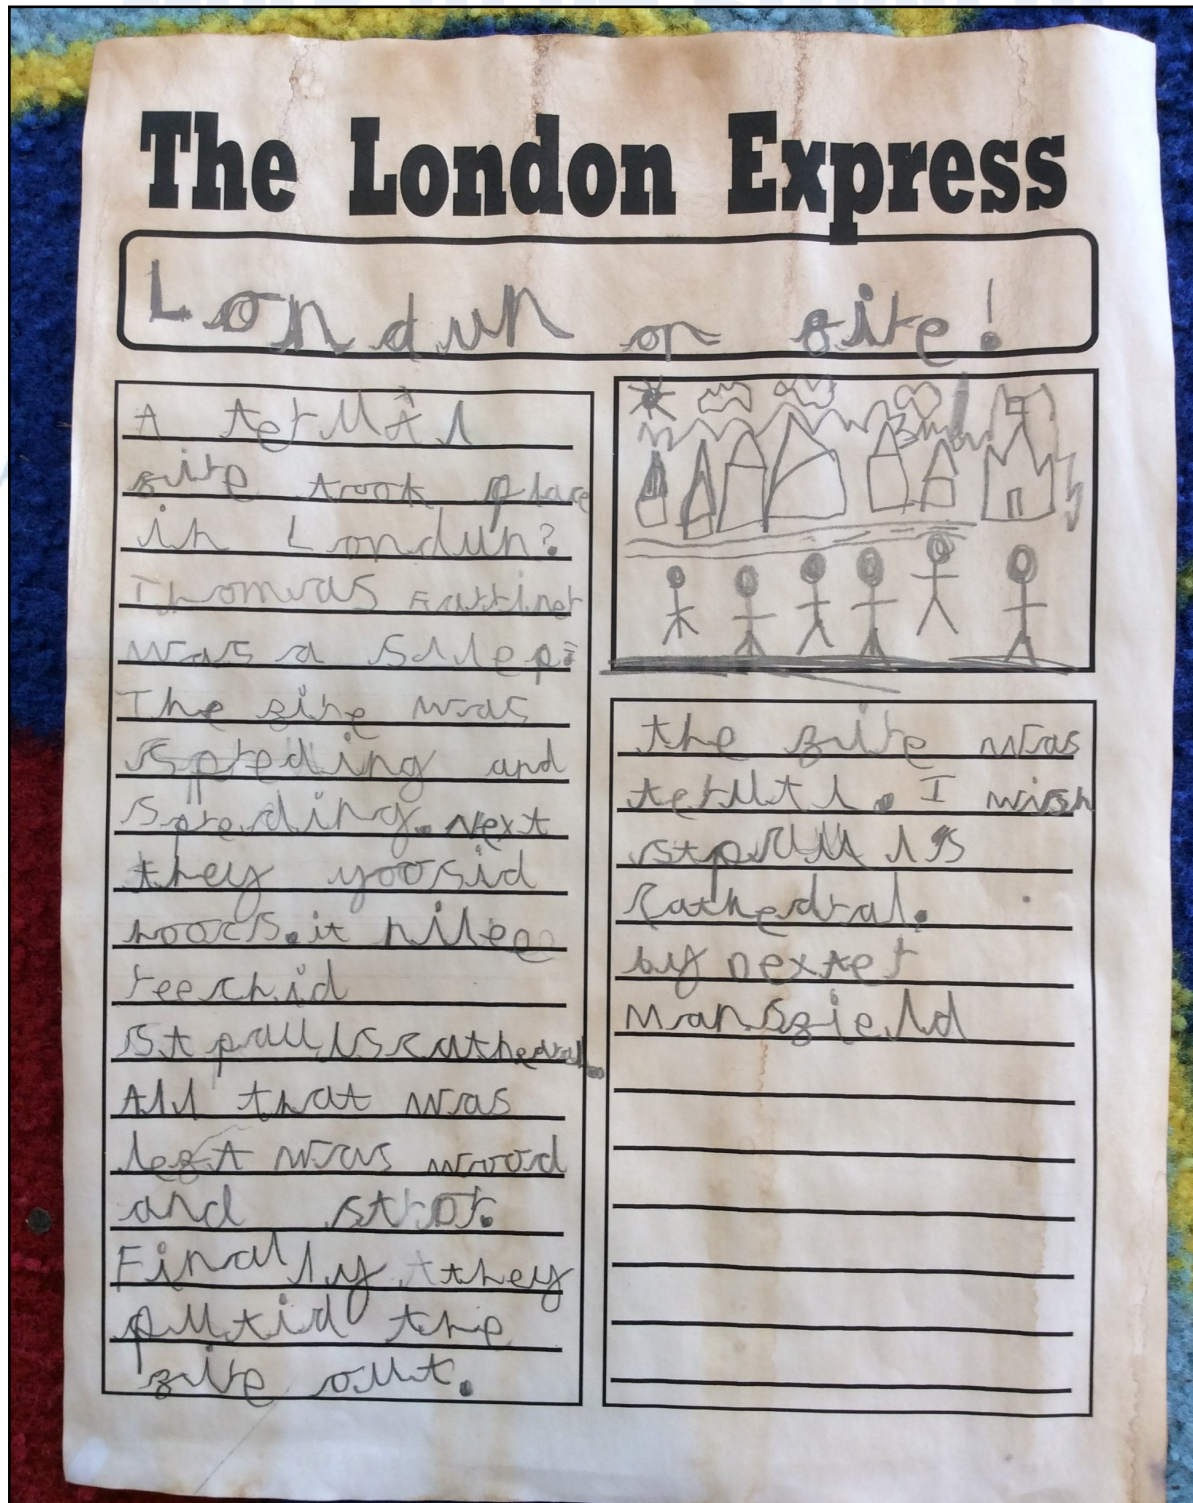 The London Express
Londun on fire!
A terubul
fire took place
in Londun?
Thomas Farriner
was a sleep.
The fire was
spreding and
spreding. Next
they yoosid
hoocs. it nile
reechid
St paulls cathedral.
All that was
left was wood
and stror.
Finally they
putid the
fire out.
the fire was
terubul. I wish
st paulls
cathedral.
by Dexter
Mansfield